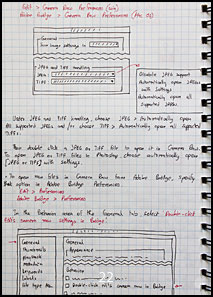 Edit > Camera Raw Preferences (Win)
Adobe Bridge > Camera Raw Preferences (Mac OS)
General
Save Image Settings in
JPEG and TIFF Handling
JPEG
TIFF
Disable JPEG support
Automatically open JPEGs
with Settings
Automatically open all
supported JPEGs
Under JPEG and TIFF Handling, choose JPEG > Automatically open
All Supported JPEGs and/or choose TIFF > Automatically open all supported
TIFFs.
double click a JPEG or TIFF file to open it in Camera Raw.
To open JPEG or TIFF files in Photoshop choose automatically open
[JPEG or TIFF] with settings
To open raw files in Camera Raw from Adobe Bridge, specify
that option in Adobe Bridge Preferences
Edit > Preferences
Adobe Bridge > Preferences
In the Behavior area of the General tab, select Double-click
edits camera raw settings in Bridge.
General
General
Thumbnails
Appearance
Playback
Metadata
Keywords
Behavior
Labels
File Type As.
Double-click edits camera raw in Bridge